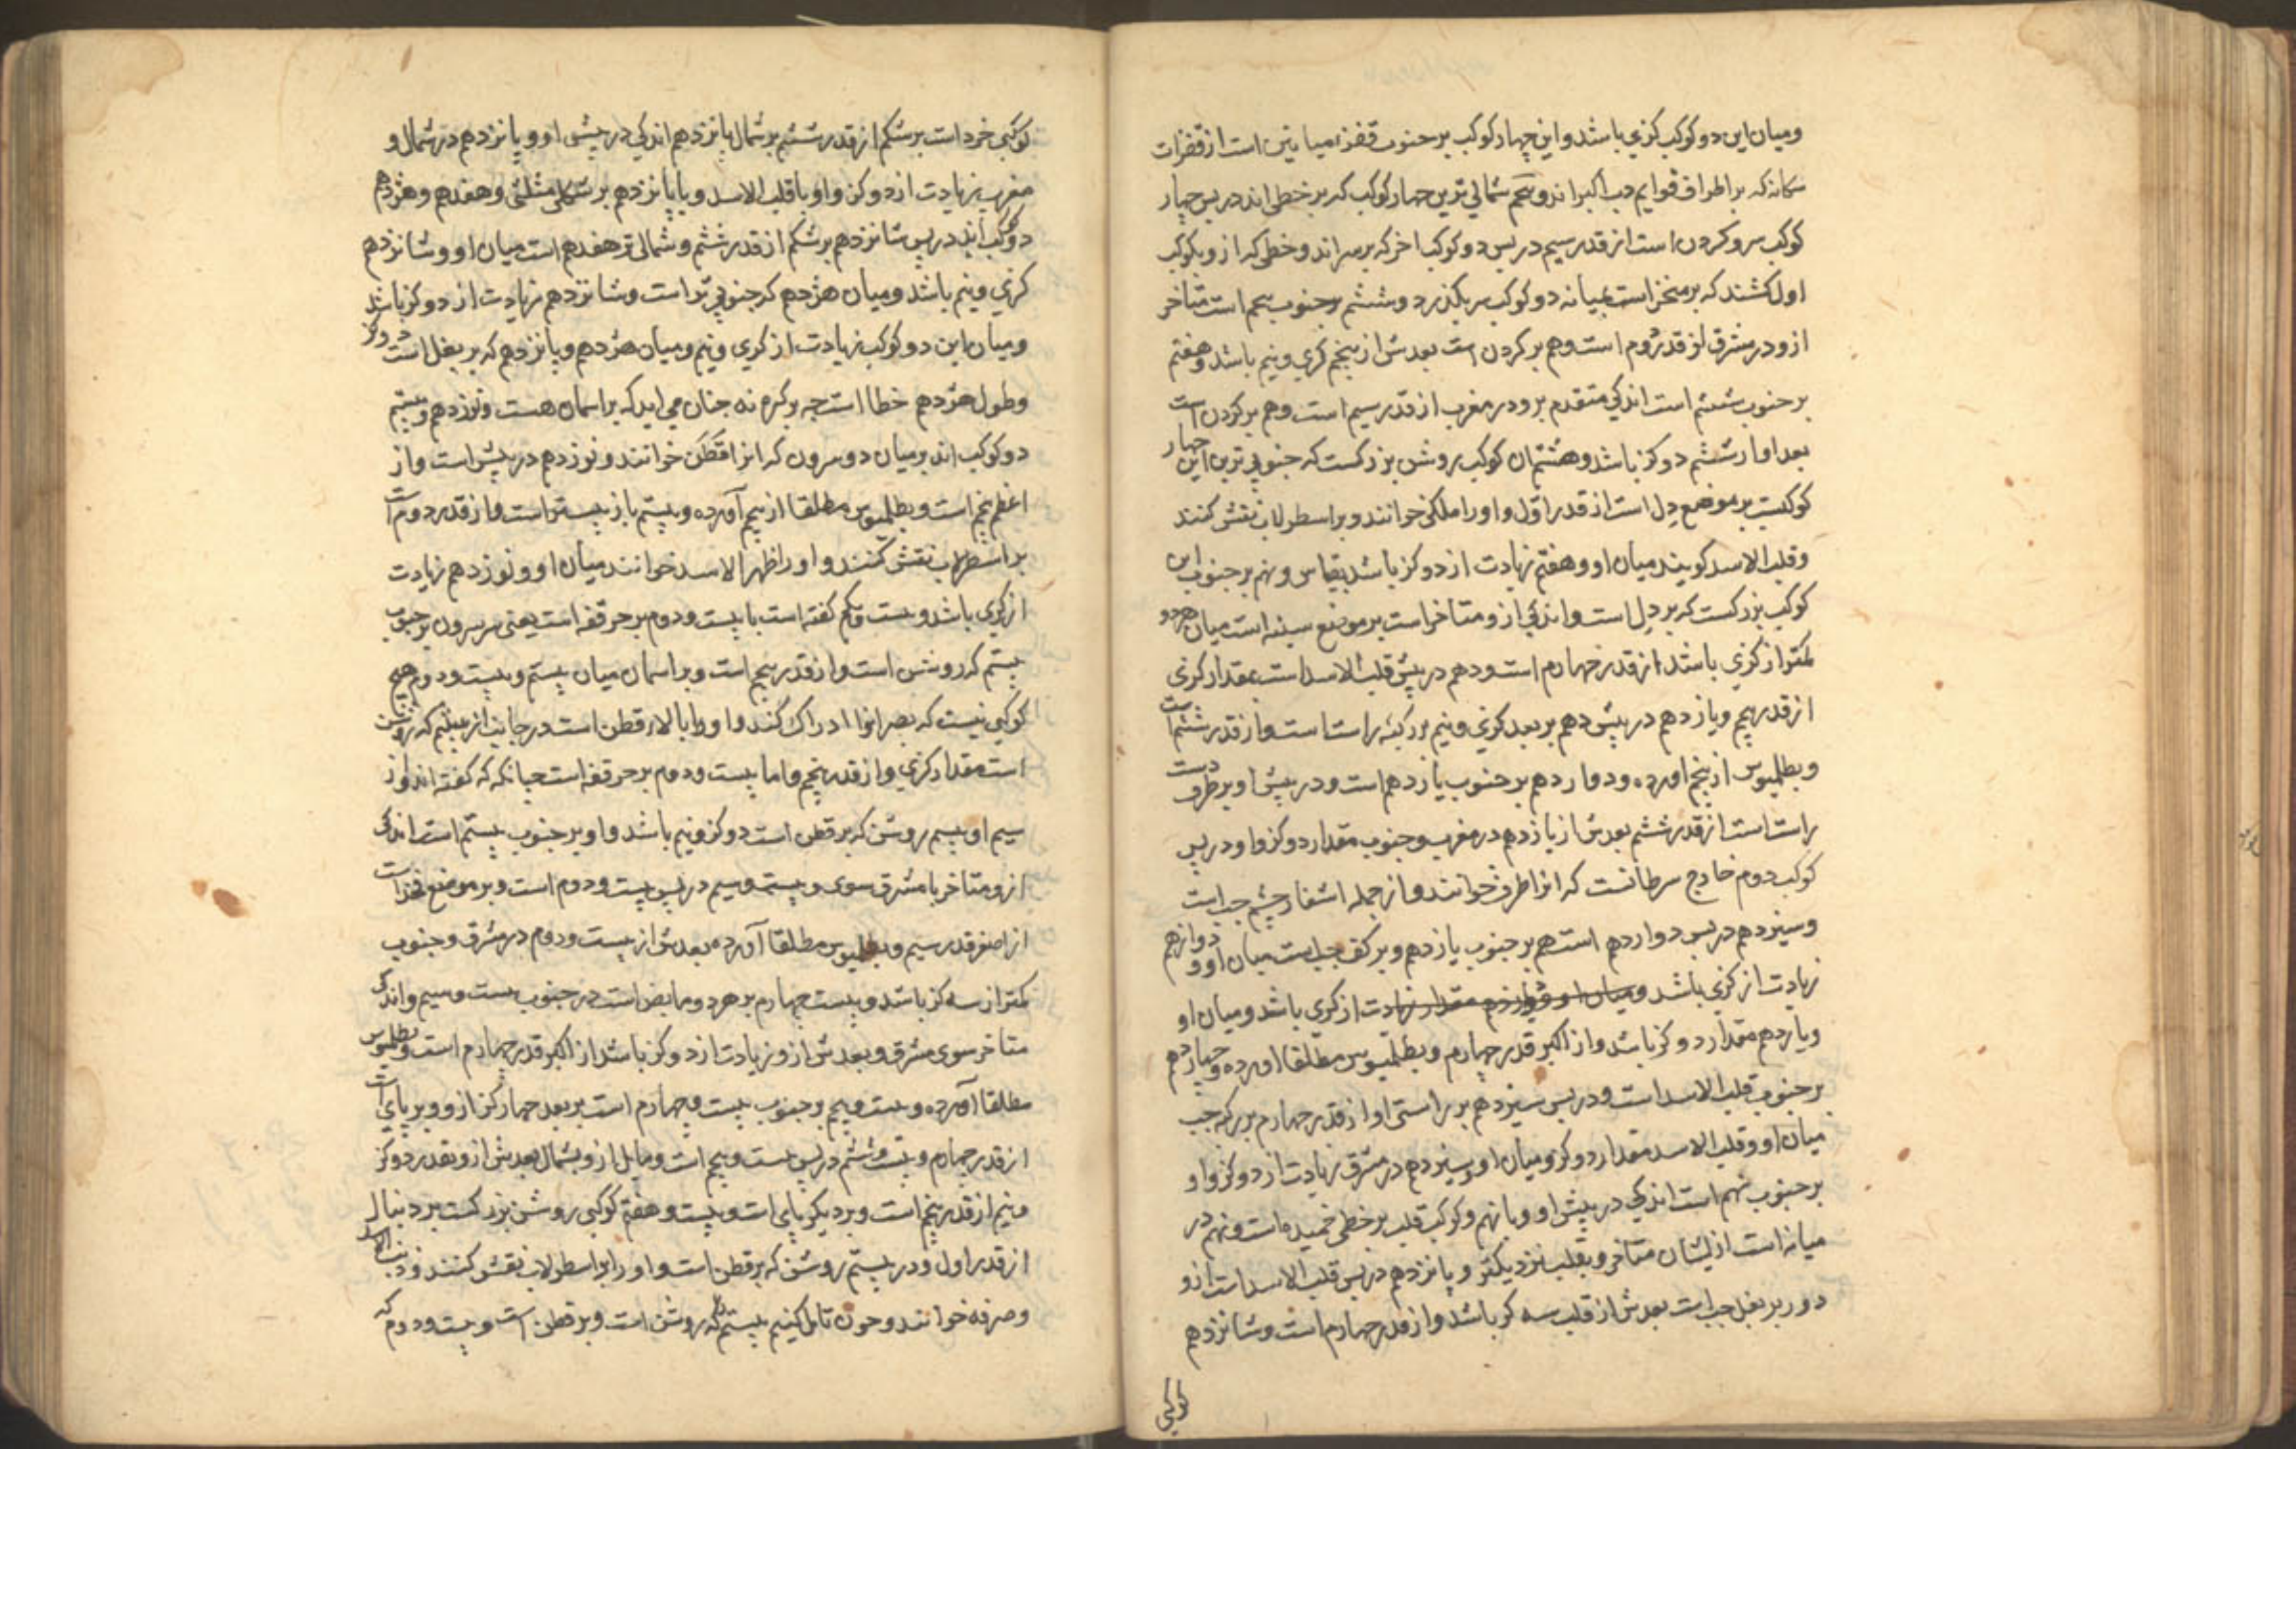 ومیان این دو کوکب کزی باشد و این چهار کوکب بر جنوب قفزه میانین است از قفزات
سکانه که بر اطراف قوایم دب اکبر اند و پنجم شمالی ترین چهار کوکب که بر خطی اند در پس چهار
کوکب سر و کردن است از قدر سیم در پس دو کوکب اخر که بر سر اند و خطی که از و بکوکب
اول کشند که بر منخر است بمیانه دو کوکب سر بکذرد و ششم بر جنوب پنجم است متاخر
ازو در مشرق از قدر دوم است و هم بر کردن است بعدش از پنجم کزی و نیم باشد و هفتم
بر جنوب ششم است اندکی متقدم برو در مغرب از قدر سیم است و هم بر کردن است
بعد او از ششم دو کز باشد و هشتم ان کوکب روشن بزرکست که جنوبی ترین این چهار
کوکبست بر موضع دل است از قدر اول و او را ملکی خوانند و بر اسطرلاب نقش کنند
و قلب الاسد کویند میان او و هفتم زیادت از دو کز باشد بقیاس و نهم بر جنوب این
کوکب بزرکست که بر دل است و اندکی ازو متاخر است بر موضع سینه است میان هر دو
کمتر از کزی باشد از قدر چهارم است و دهم در پیش قلب الاسد است بمقدار کزی
از قدر پنجم و یازدهم در پیش دهم بر بعد کزی و نیم بر رکبه راستست و از قدر ششم است
و بطلمیوس از پنجم اورده و دوازدهم بر جنوب یازدهم است و در پیش او بر طرف دست
راست است از قدر ششم بعدش از یازدهم در مغرب و جنوب مقدار دو کز و او در پس
کوکب دوم خارج سرطانست که انرا طرف خوانند و از جمله اشفار چشم چپ است
و سیزدهم در پس دوازدهم است هم بر جنوب یازدهم و بر کف چپ است میان او و دوازدهم
زیادت از کزی باشد و میان او و یازدهم مقدار زیادت از کزی باشد و میان او
و یازدهم مقدار دو کز باشد و از اکبر قدر چهارم و بطلمیوس مطلقا اورده و چهاردهم
بر جنوب قلب الاسد است و در پس سیزدهم بر راستی او از قدر چهارم بر رکبه چپ
میان او و قلب الاسد مقدار دو کز و میان او و سیزدهم در مشرق زیادت از دو کز و او
بر جنوب نهم است اندکی در پیش او و با نهم و کوکب قلب بر خطی خمیده است و نهم در
میانه است از ایشان متاخر و بقلب نزدیکتر و پانزدهم در پس قلب الاسد است ازو
دور بر بغل چپ است بعدش از قلب سه کز باشد و از قدر چهارم است و شانزدهم
کوکبی
کوکبی خرد است بر شکم از قدر ششم بر شمال پانزدهم اندکی در پیش او و پانزدهم در شمال و
مغرب زیادت از دو کز و او با قلب الاسد و با پانزدهم بر شکل مثلثی و هفدهم و هژدهم
دو کوکب اند در پس شانزدهم بر شکم از قدر ششم و شمالی تر هفدهم است میان او و شانزدهم
کزی و نیم باشد و میان هژدهم که جنوبی تر است و شانزدهم زیادت از دو کز باشد
و میان این دو کوکب زیادت از کزی و نیم و میان هژدهم و پانزدهم که بر بغل است دو کز
و طول هژدهم خطا است چه بر کره نه چنان می اید که بر اسمان هست و نوزدهم و بیستم
دو کوکب اند بر میان دو سرون که انرا قطن خوانند و نوزدهم در پیش است و از
اعظم پنجم است و بطلمیوس مطلقا از پنجم آورده و بیستم باز پستر است و از قدر دوم است
بر اسطرلاب نقش کنند و او را ظهر الاسد خوانند میان او و نوزدهم زیادت
از کزی باشد و بیست و یکم کفته است با بیست و دوم بر حرقفه است یعنی سر سرون بر جنوب
بیستم که روشن است و از قدر پنجم است و بر اسمان میان بیستم و بیست و دوم هیچ
کوکبی نیست که بصر انرا ادراک کند و او را بالاء قطن است در جانب از بیستم که روشن
است مقدار کزی و از قدر پنجم و اما بیست و دوم بر حرقفه است چنانکه که کفته اند و از
سیم او بیستم روشن که بر قطن است دو کز و نیم باشد و او بر جنوب بیستم است اندکی
ازو متاخر با مشرق سوی و بیست و سیم در پس بیست و دوم است و بر موضع فخذ است
از اصغر قدر سیم و بطلمیوس مطلقا آورده بعدش از بیست و دوم در مشرق و جنوب
کمتر از سه کز باشد و بیست چهارم بر هر دو مابض است در جنوب بیست و سیم و اندکی
متاخر سوی مشرق و بعدش ازو زیادت از دو کز باشد از اکبر قدر چهارم است و بطلمیوس
مطلقا آورده و بیست و پنجم بر جنوب بیست و چهارم است بر بعد چهار کز ازو و بر پای است
از قدر چهارم و بیست و ششم در پس بیست و پنجم است و مایل ازو بشمال بعدش ازو بقدر دو کز
و نیم از قدر پنجم است و بر دیکر پای است و بیست و هفتم کوکبی روشن بزرکست بر دنبال
از قدر اول و در بیستم روشن که بر قطن است و او را بر اسطرلاب نقش کنند و ذنب الاسد
و صرفه خوانند و چون تامل کنیم بیستم که روشن است و بر قطن است و بیست و دوم که